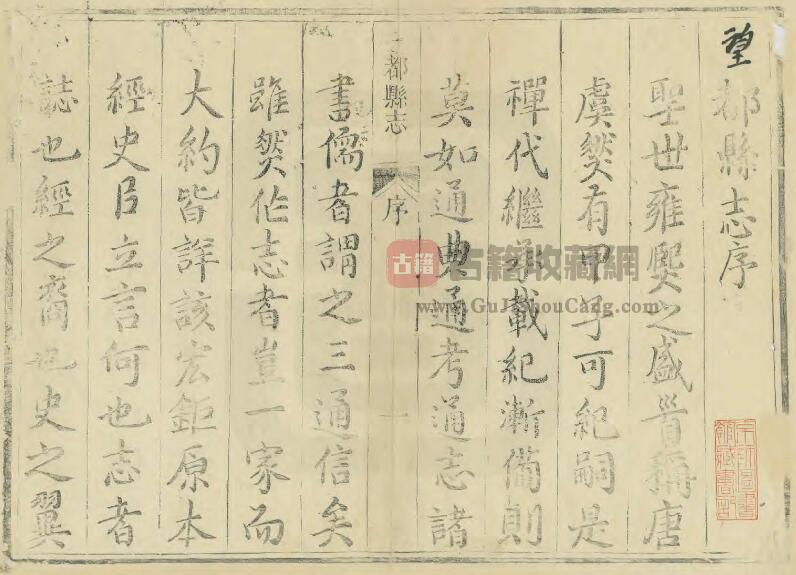 望都縣志序
聖世雍熙之盛首稱唐
虞爰有甲子可紀嗣是
禪代繼承載紀漸備則
莫如通典通考通志諸
都縣志
序
一
書儒者謂之三通信矣
雖然作志者豈一家而
大約皆詳該宏鉅原本
經史臣立言何也志者
誌也經之裔也史之翼
古籍
古籍收藏網
www.GuJiShouCang.com